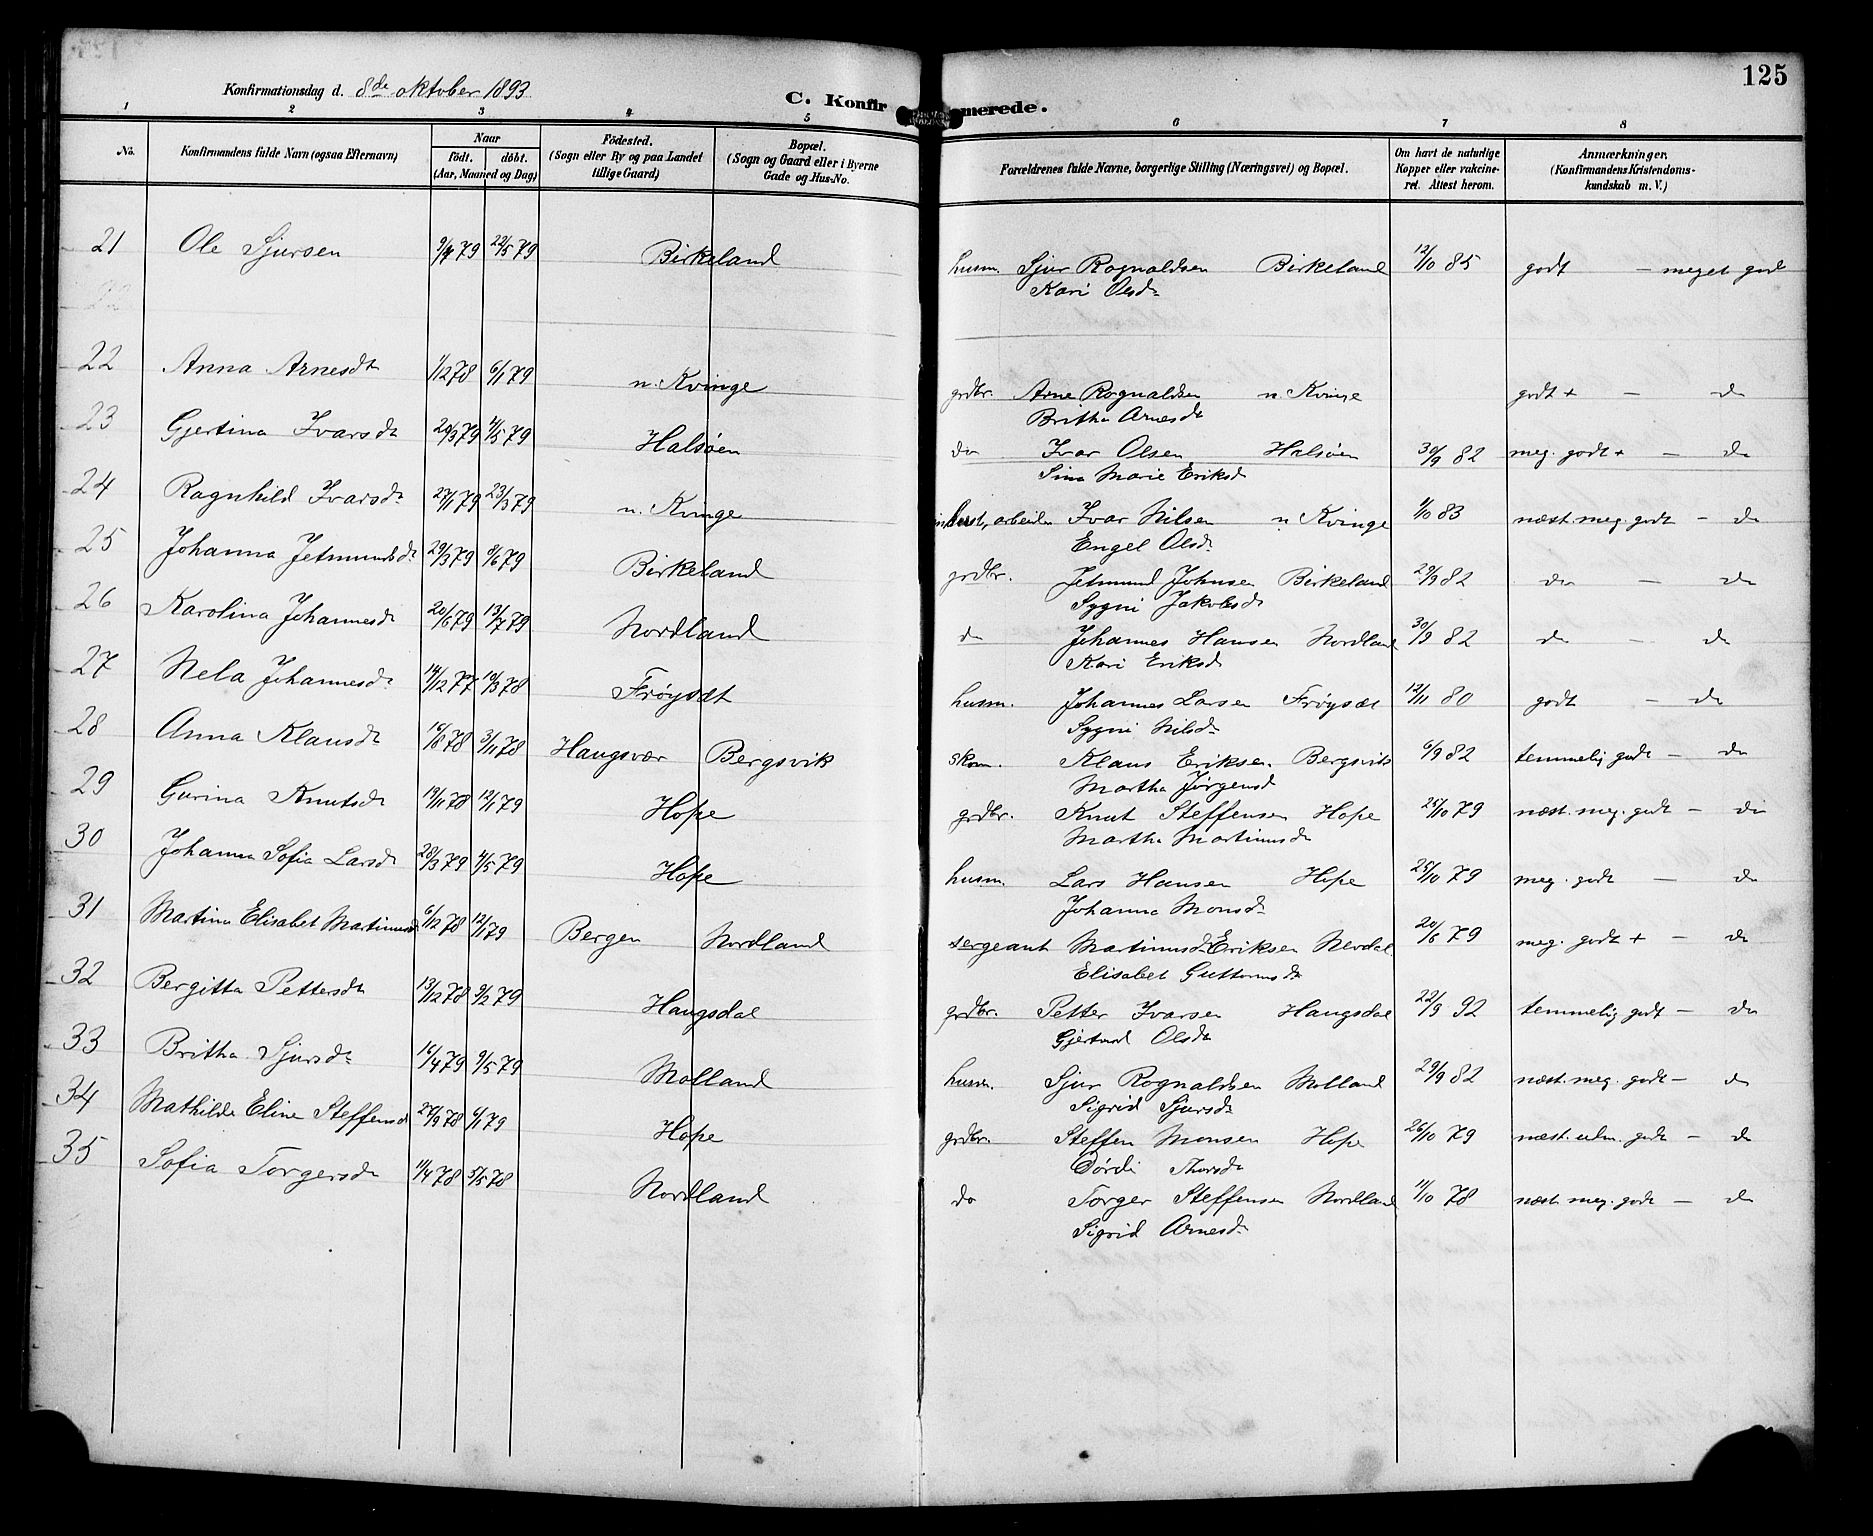 125
Konfirmationsdag d. 8de oktober 1893
C. Konfirmerede.
1 2 3 4 5 6 7 8
No. Konfirmandens fulde Navn (ogsaa Efternavn) Naar født. døbt. (Aar, Maaned og Dag) Fødested. (Sogn eller By og paa Landet tillige Gaard) Bopæl. (Sogn og Gaard eller i Byerne Gade og Hus-No. Forældrenes fulde Navne, borgerlige Stilling (Næringsvei) og Bopæl. Om havt de naturlige Kopper eller vakcineret. Attest herom. Anmærkninger. (Konfirmandens Kristendomskundskab m. V.)
21 Ole Sjursen 9/4 79 22/5 79 Birkeland husm. Sjur Rognaldsen Birkeland 12/10 85 godt – meget god
Kari Olsdr
22
22 Anna Arnesdr 1/12 78 6/1 79 n. Kvinge grdbr. Arne Rognaldsen n Kvinge godt + – do
Britha Arnesdr
23 Gjertina Ivarsdr 20/3 79 4/5 79 Halsøen do Ivar Olsen Halsøen 30/9 82 meg. godt + – do
Sina Marie Eriksd
24 Ragnhild Ivarsdr 27/1 79 23/3 79 n. Kvinge inderst, arbeider Ivar Nilsen n Kvinge 1/10 83 næst. meg. godt – do
Engel Olsdr
25 Johanna Jetmundsdr 29/3 79 8/6 79 Birkeland grdbr. Jetmund Johnsen Birkeland 29/9 82 do – do
Sygni Jakobsd
26 Karolina Johannesdr 20/6 79 13/7 79 Nordland do Johannes Hansen Nordland 30/9 82 do – do
Kari Eriksd
27 Nela Johannesdr 14/12 77 10/3 78 Frøysæt husm. Johannes Larsen Frøysæt 12/11 80 godt – do
Sygni Nilsdr
28 Anna Klausdr 16/8 78 3/11 78 Haugsvær Bergsvik skom. Klaus Eriksen Bergsvik 6/9 82 temmelig godt – do
Martha Jørgensd
29 Gurina Knutsdr 14/11 78 12/1 79 Hope grdbr. Knut Steffensen Hope 25/10 79 næst. meg. godt – do
Martha Martinusdr
30 Johanna Sofia Larsdr 28/3 79 4/5 79 Hope husm. Lars Hansen Hope 25/10 79 meg. godt – do
Johanna Monsdr
31 Martina Elisabet Martinusdr 6/12 78 12/1 79 Bergen Nordland sergeant Martinus Eriksen 20/6 79 meg. godt + – do
Elisabet Guttormsdr
32 Bergitta Pettersdr 13/12 78 9/2 79 Haugsdal grdbr. Petter Ivarsen Haugsdal 22/9 92 temmelig godt – do
Gjertrud Olsdr
33 Britha Sjursdr 16/4 79 9/5 79 Molland husm. Sjur Rognaldsen Molland 29/9 82 næst. meg. godt – do
Sigrid Sjursdr
34 Mathilde Eline Steffensd 27/9 78 6/1 79 Hope grdbr. Steffen Monsen Hope 26/10 79 næst. udm. godt – do
Dørdi Thorsdr
35 Sofia Torgersdr 11/4 78 5/5 78 Nordland do Torger Steffensen Nordland 11/10 78 næst. meg. godt – do
Sigrid Arnesdr